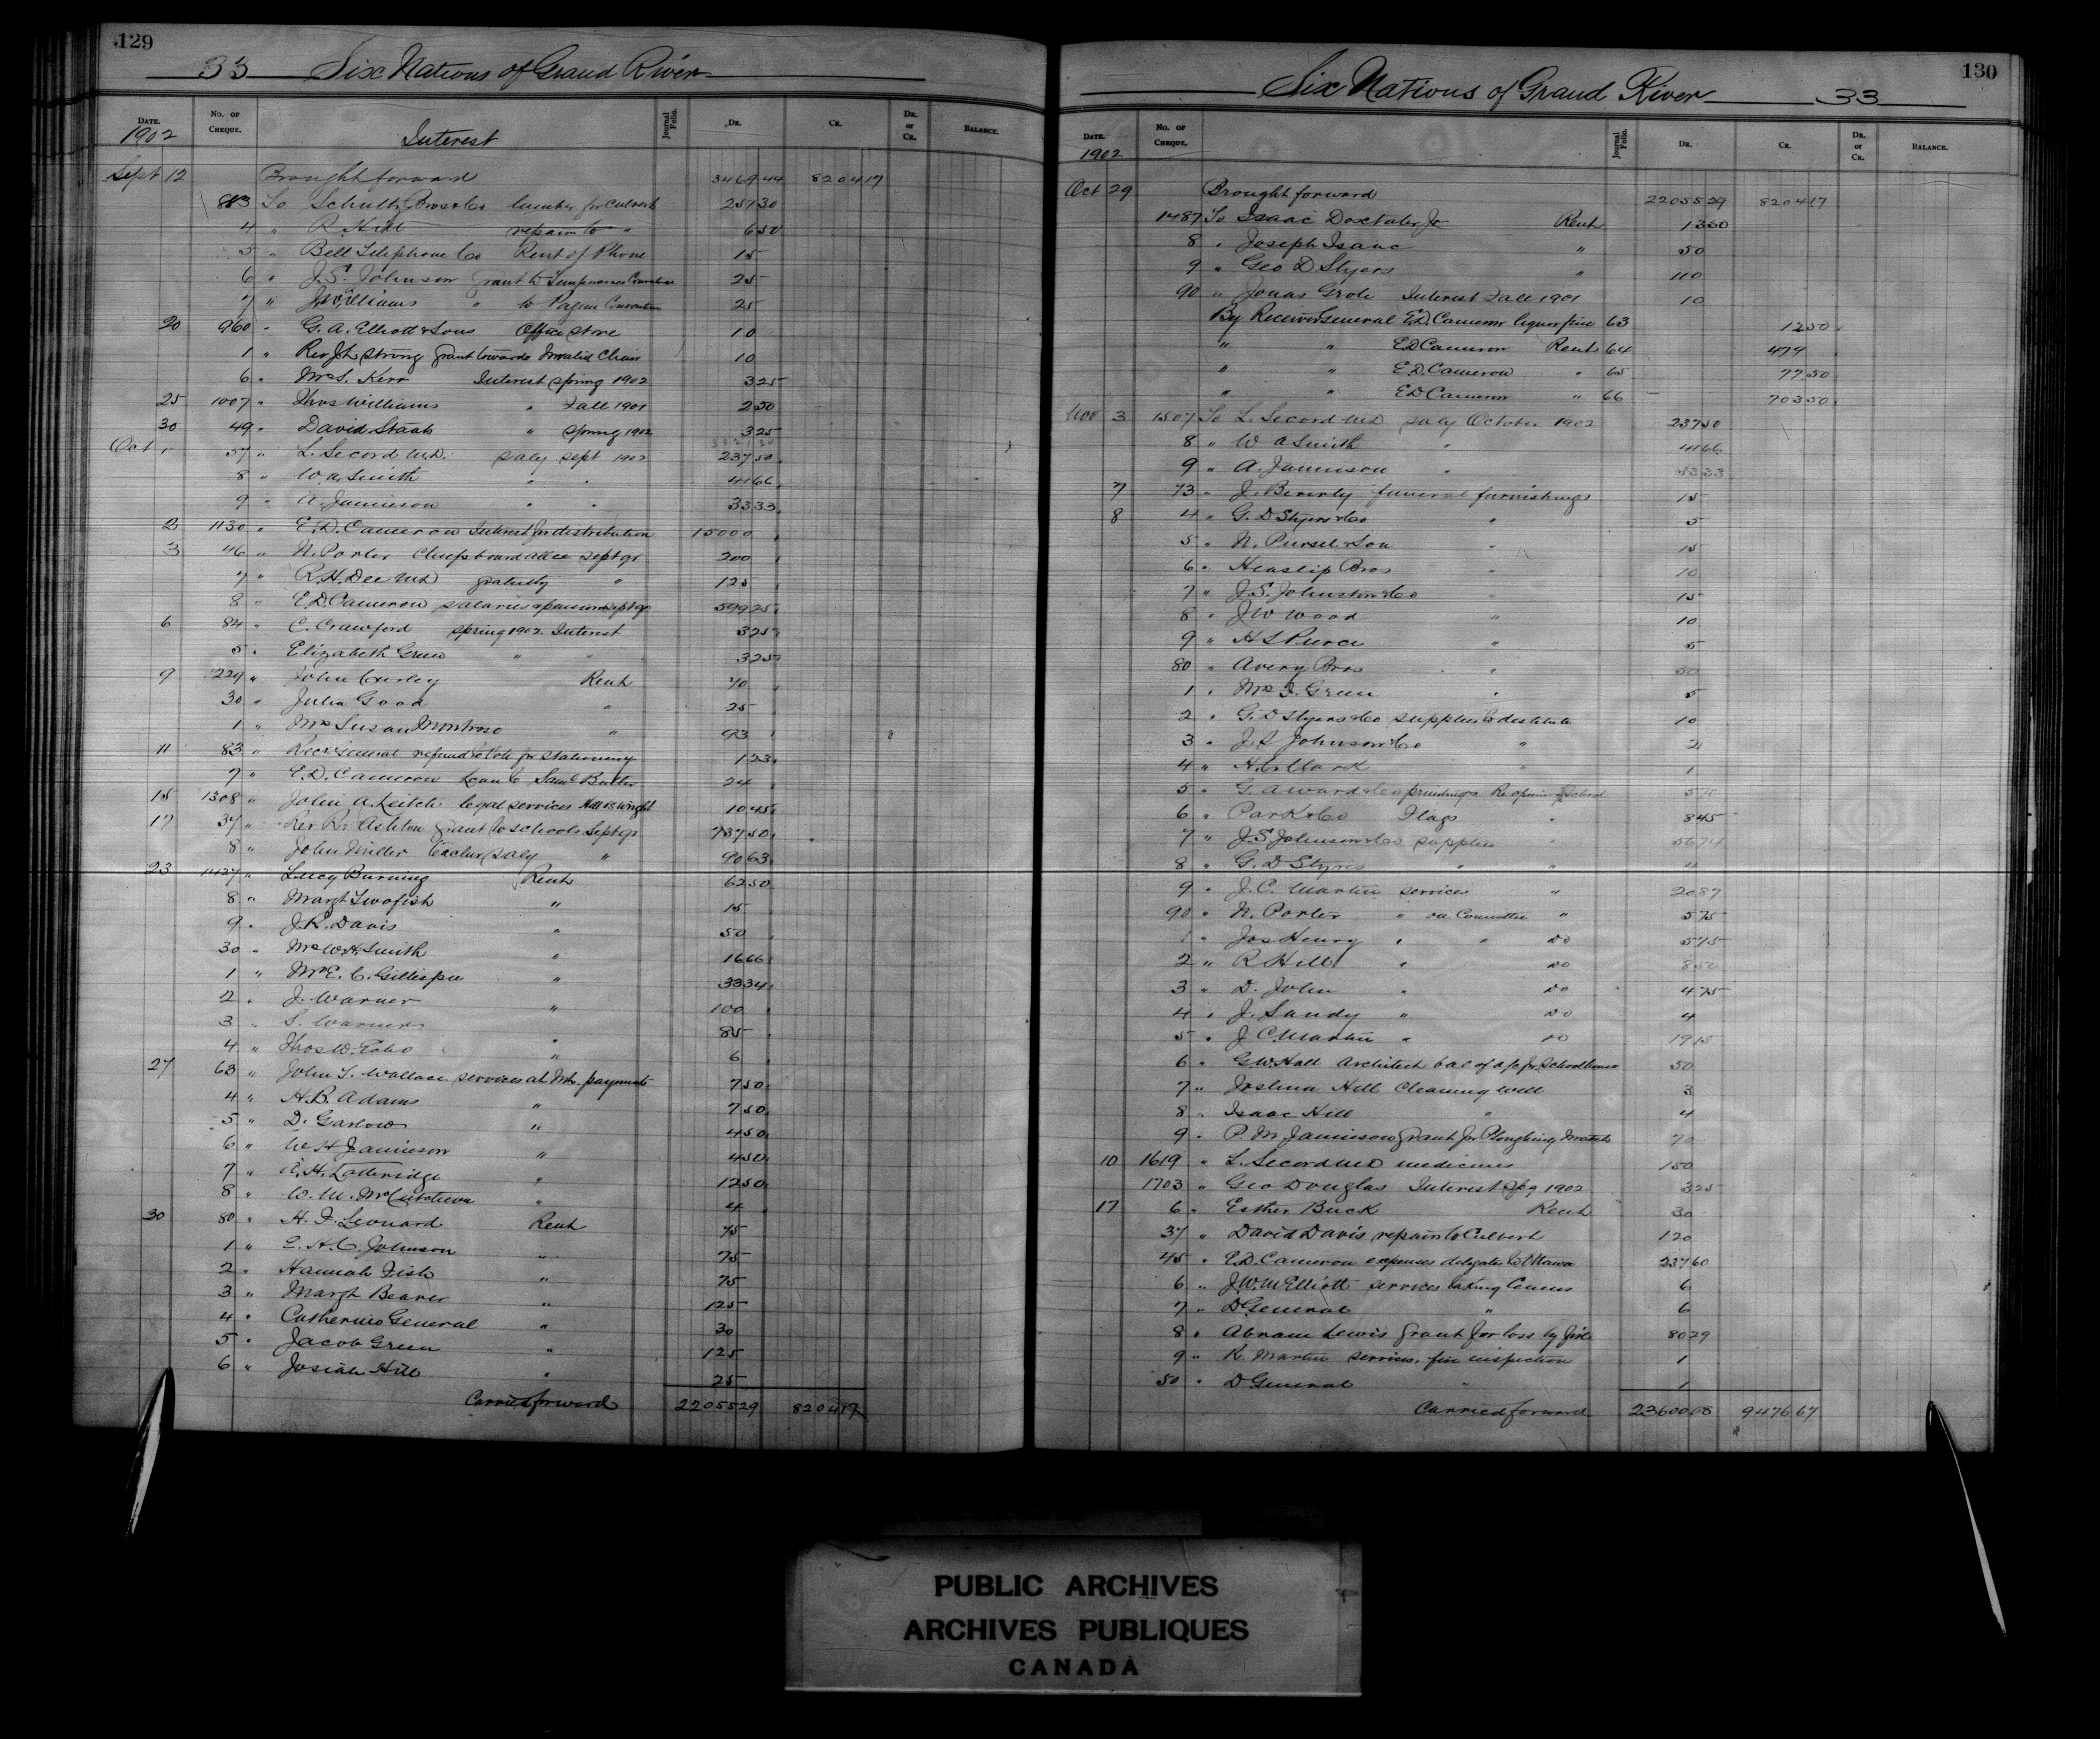 129
33 Six Nations of Grand River
DATE. No. of CHEQUE. Journal Folio. DR. CR. DR. or CR. BALANCE.
1902 Interest
Sept 12 Brought forward 3469 44 8204 17
883 To Schultz Bros & Co lumber for culvert 251 30
4 " R. Hill repairs to " 6 50
5 " Bell Telephone Co Rent of Phone 15
6 " J. S. Johnson grant to Temperance Convention 25
7 " J Williams " to Pagan Convention 25
20 960 " G. A. Elliott & Sons Office stove 10
1 " Rev J L Strong grant towards Invalid Chair 10
6 " Mrs S. Kerr Interest spring 1902 3 25
25 1007 " Thos Williams " Fall 1901 2 50
30 49 " David Staats " spring 1902 3 25
Oct 1 57 " L. Secord M.D. saly sept 1902 237 50
8 " W. A. Smith " " 41 66
9 " A. Jamieson " " 33 33
2 1130 " E. D. Cameron Interest for distribution 15000
3 46 " N. Porter Chiefs board allce Sept qr 200
7 " R. H. Dee M.D. gratuity " 125
8 " E. D. Cameron salaries & pensions Sept qr 599 25
6 84 " C. Crawford spring 1902 Interest 3 25
5 " Elizabeth Green " " 3 25
9 1229 " John Curley Rent 70
30 " Julia Good " 25
1 " Mrs Susan Montross " 93
11 83 " Recr General refund to Vote for stationery 1 23
7 " E. D. Cameron Loan to Saml Butler 24
15 1308 " John A. Leitch legal services Hill vs Wright 10 45
17 37 " Rev R. Ashton grant to schools Sept qr 737 50
8 " John Miller teacher saly " 90 63
23 1427 " Lucy Burning Rent 62 50
8 " Margt Twofish " 15
9 " J. R. Davis " 50
30 " Mrs W. H. Smith " 16 66
1 " Mrs E. C. Gillispie " 33 34
2 " J. Warner " 100
3 " S. Warner " 85
4 " Thos W. Echo " 6
27 63 " John T. Wallace services at Int. payments 7 50
4 " H. B. Adams " 7 50
5 " D. Garlow " 4 50
6 " W H Jamieson " 4 50
7 " A. H. Lotteridge " 12 50
8 " W. M. McCutcheon " 4
30 80 " H. F. Leonard Rent 75
1 " E. H. C. Johnson " 75
2 " Hannah Fish " 75
3 " Margt Beaver " 125
4 " Catherine General " 30
5 " Jacob Green " 125
6 " Josiah Hill " 25
Carried forward 22055 29 8204 17
130
Six Nations of Grand River 33
DATE. No. of CHEQUE. Journal Folio. DR. CR. DR. or CR. BALANCE.
1902
Oct 29 Brought forward 22055 29 8204 17
1487 To Isaac Doxtater Jr Rent 13 50
8 " Joseph Isaac " 50
9 " Geo D Styers " 110
90 " Jonas Grote Interest Fall 1901 10
By Receiver General E. D. Cameron liquor fine 63 12 50
" " E D Cameron Rent 64 479
" " E. D. Cameron " 65 77 50
" " E D Cameron " 66 703 50
Nov 3 1507 To L. Secord M.D. saly October 1902 237 50
8 " W A Smith " 41 66
9 " A. Jamieson " 33 33
7 73 " J. Beverly funeral furnishings 15
8 4 " G. D Styers & Co " 5
5 " N. Pursel & Son " 15
6 " Heaslip Bros " 10
7 " J. S. Johnston & Co " 15
8 " J W Wood " 10
9 " H S Pierce " 5
80 " Avery Bros " 50
1 " Mrs I. Green " 5
2 " G. D Styers & Co supplies to destitute 10
3 " J. S Johnson & Co " 2
4 " " 1
5 " G. A Ward & Co printing Re opening of School 5 70
6 " Park & Co Flags " 8 45
7 " J. S Johnson & Co supplies " 56 74
8 " G. D Styres " " 4
9 " J. C. Martin services " 20 87
90 " N. Porter " on Committee " 5 75
1 " Jos Henry " " Do 5 75
2 " R Hill " Do 8 50
3 " D. John " Do 4 75
4 " J. Sandy " Do 4
5 " J C Martin " Do 19 15
6 " G W Hall Architect bal of a/c for Schoolhouse 50
7 " Joshua Hill Cleaning well 3
8 " Isaac Hill " 4
9 " P. M Jamieson grant for Ploughing Match 70
10 1619 " L. Secord M D medicines 150
1703 " Geo Douglas Interest Spg 1902 3 25
17 6 " Esther Buck Rent 30
37 " David Davis repairs to Culvert 1 20
45 " E. D. Cameron expenses delegates to Ottawa 237 60
6 " J. W. M Elliott services taking Census 6
7 " D General " 6
8 " Abram Lewis grant for loss by fire 80 29
9 " R. Martin services, fire inspection 1
50 " D General " 1
Carried forward 23600 08 9476 67
PUBLIC ARCHIVES
ARCHIVES PUBLIQUES
CANADA